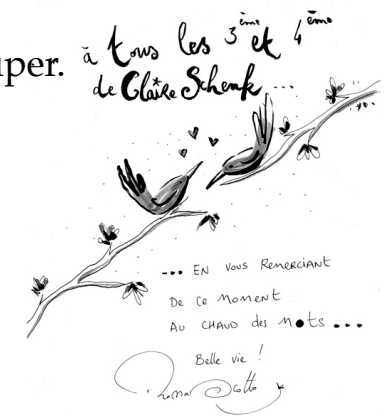 uper.
à tous les 3ème et 4ème
de Claire Schenk....
... EN VOUS REMERCIANT
DE CE MOMENT
AU CHAUD des mots ...
Belle vie !